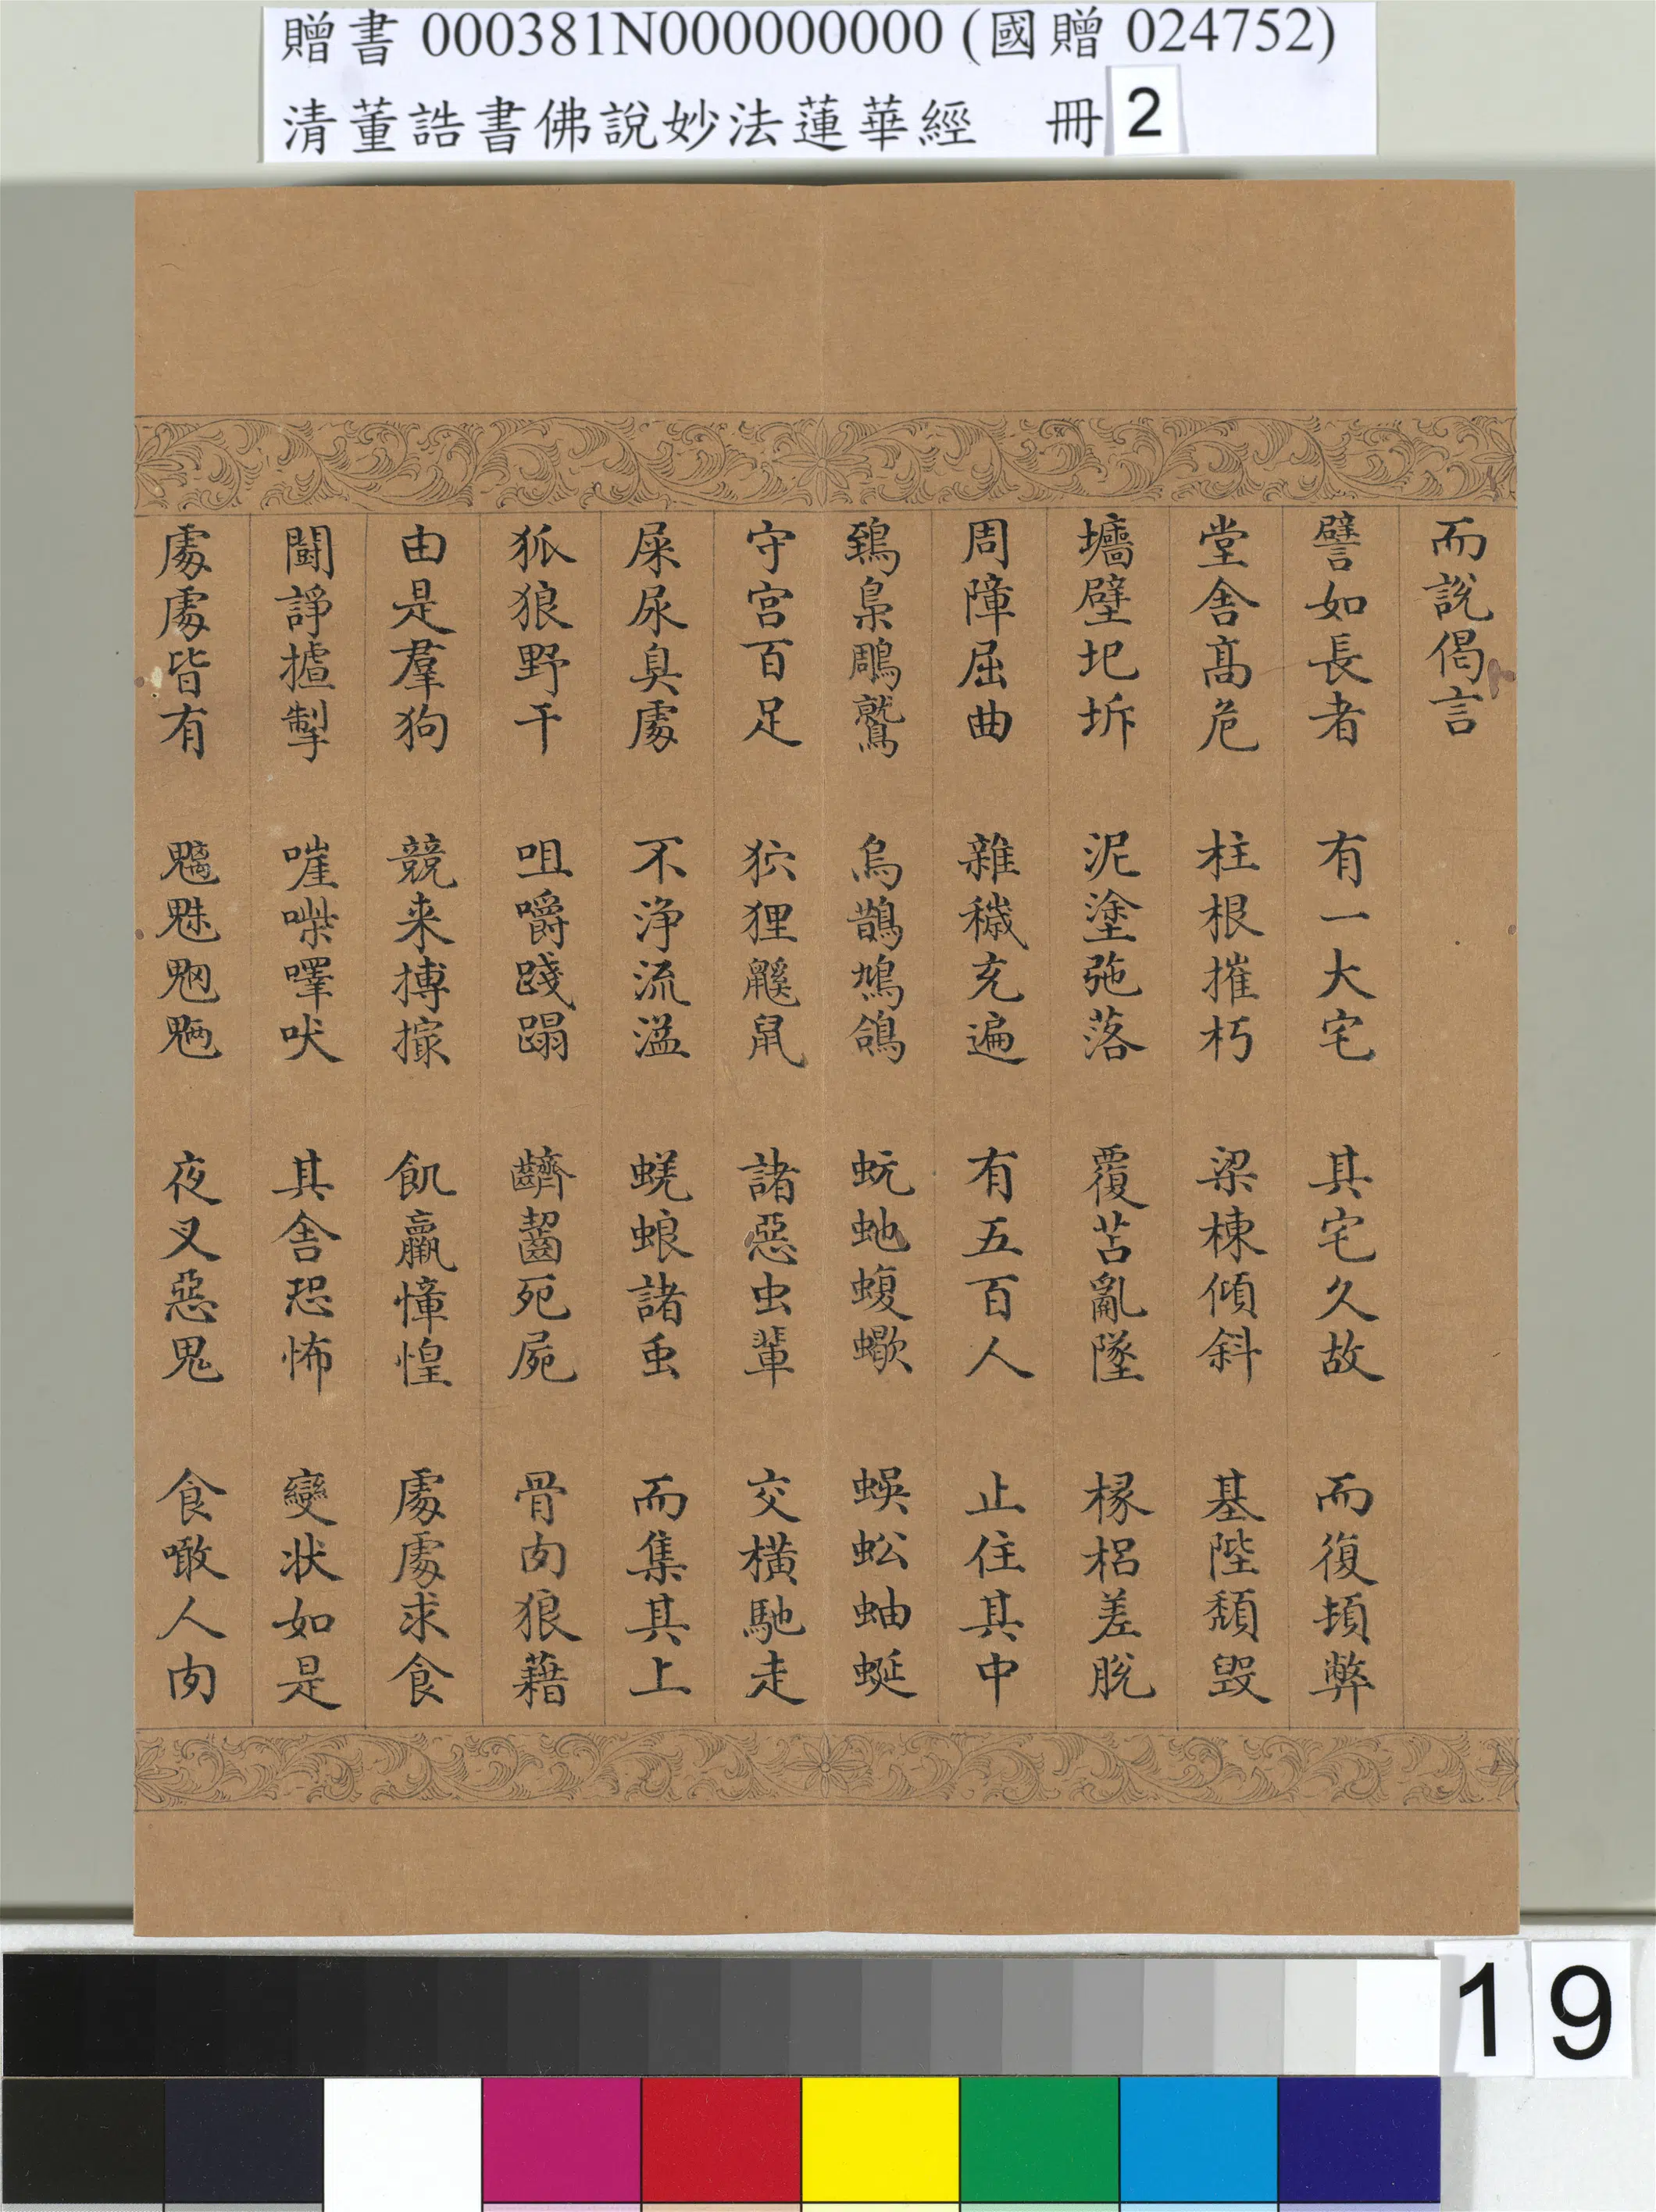 贈書 000381N000000000 (國贈 024752)
清董誥書佛說妙法蓮華經 冊 2
而說偈言
譬如長者 有一大宅 其宅久故 而復頓弊
堂舍髙危 柱根摧朽 梁棟傾斜 基陛頹毀
墻壁圮坼 泥塗弛落 覆苫亂墜 椽梠差脫
周障屈曲 雜穢充遍 有五百人 止住其中
鵄梟鵰鷲 烏鵲鳩鴿 蚖虵蝮蠍 蜈蚣蚰蜒
守宮百足 狖狸鼷鼠 諸惡虫輩 交橫馳走
屎尿臭處 不淨流溢 蜣蜋諸虫 而集其上
狐狼野干 咀嚼踐蹋 齩齧死屍 骨肉狼藉
由是羣狗 競来搏撮 飢羸慞惶 處處求食
鬪諍摣掣 嘊喍嘷吠 其舍恐怖 變状如是
處處皆有 魑魅魍魎 夜叉惡鬼 食噉人肉
19